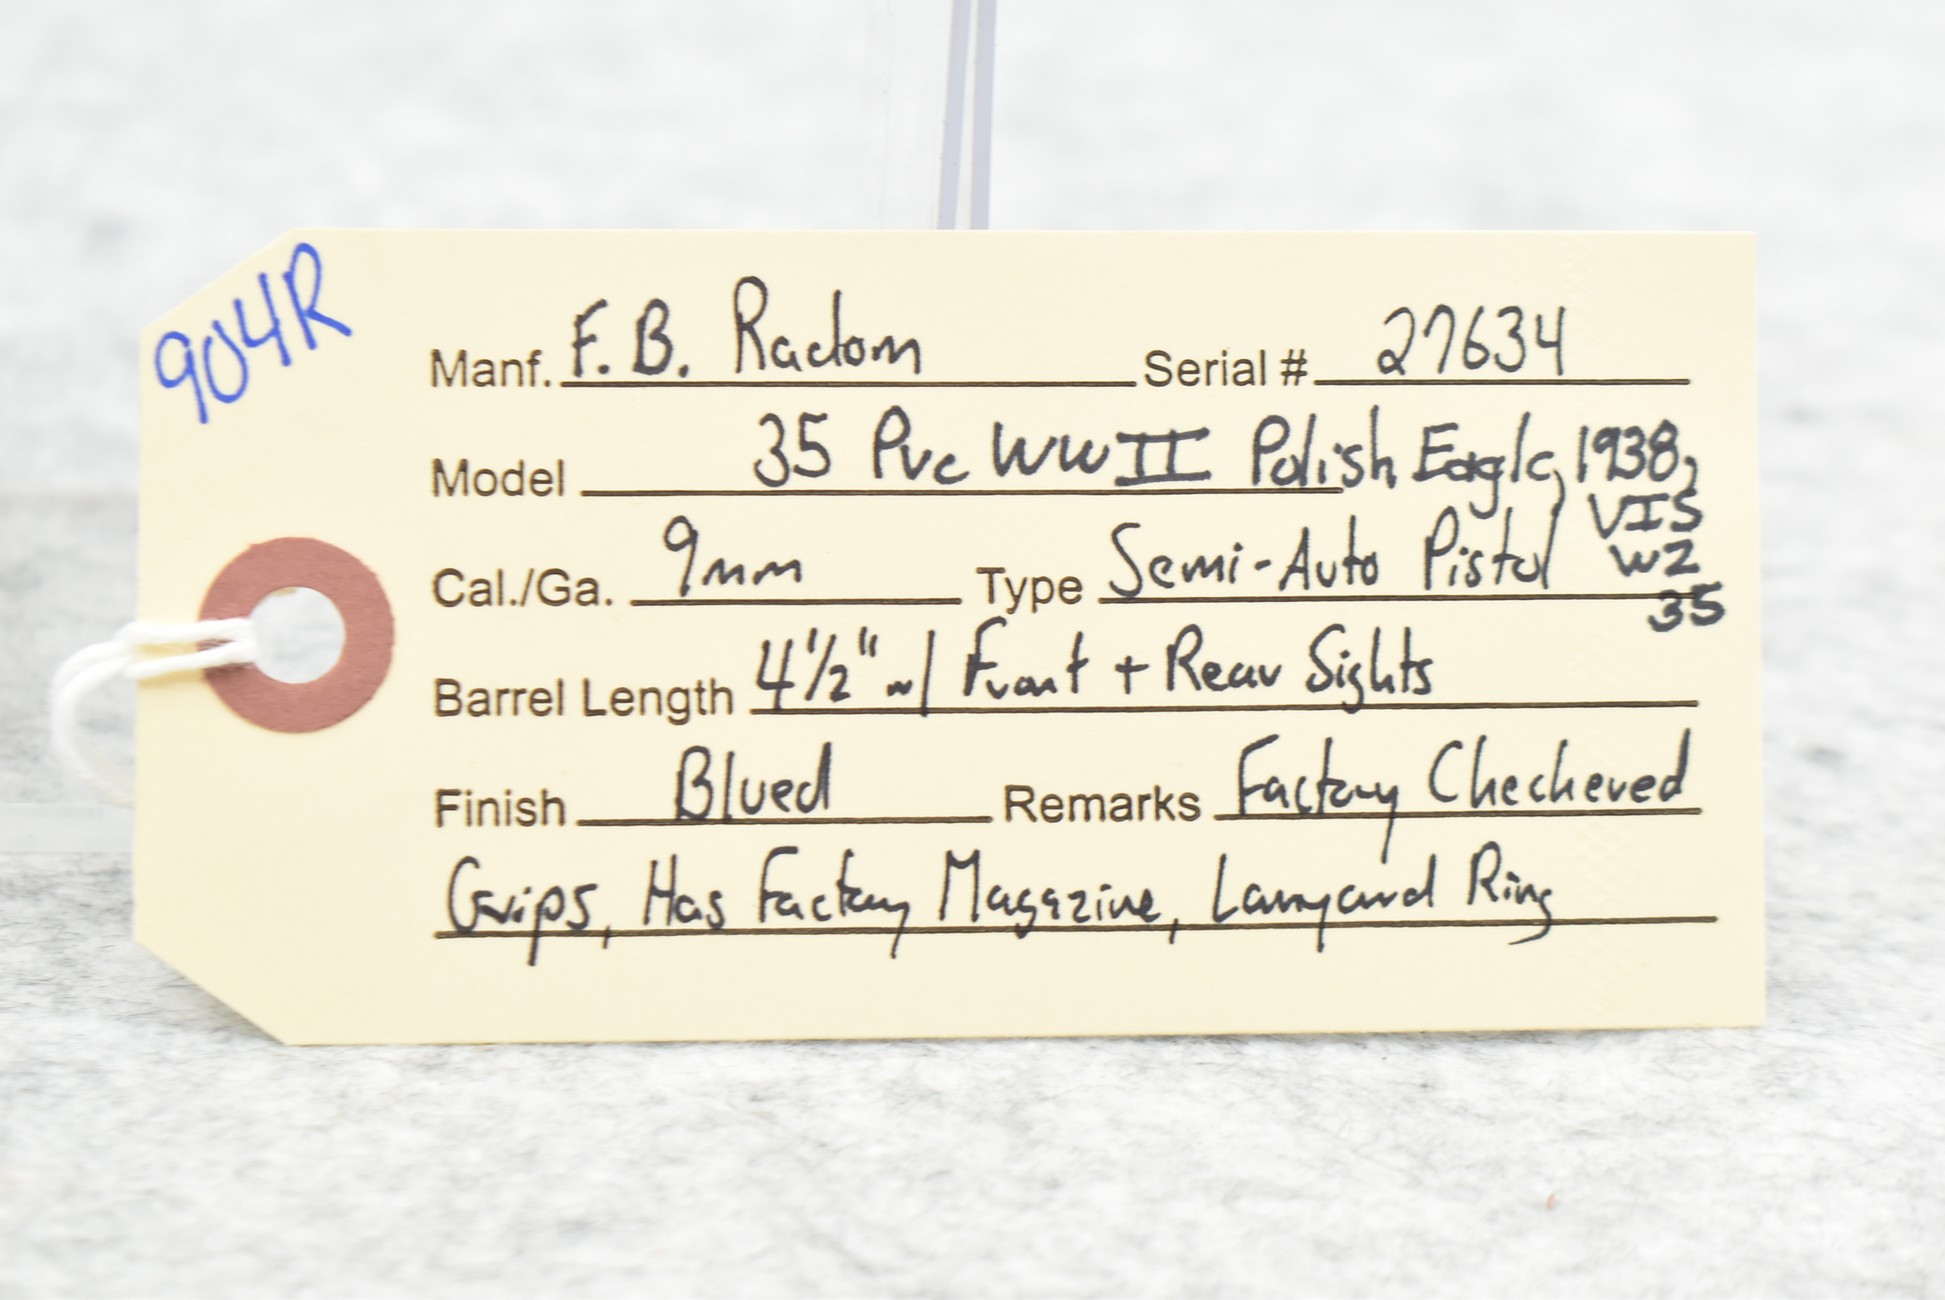 904R
Manf. F. B. Radom Serial # 27634
Model 35 Pre WWII Polish Eagle, 1938,
VIS
Cal./Ga. 9mm Type Semi-Auto Pistol WZ
35
Barrel Length 4 1/2" w/ Front + Rear Sights
Finish Blued Remarks Factory Checkered
Grips, Has Factory Magazine, Lanyard Ring